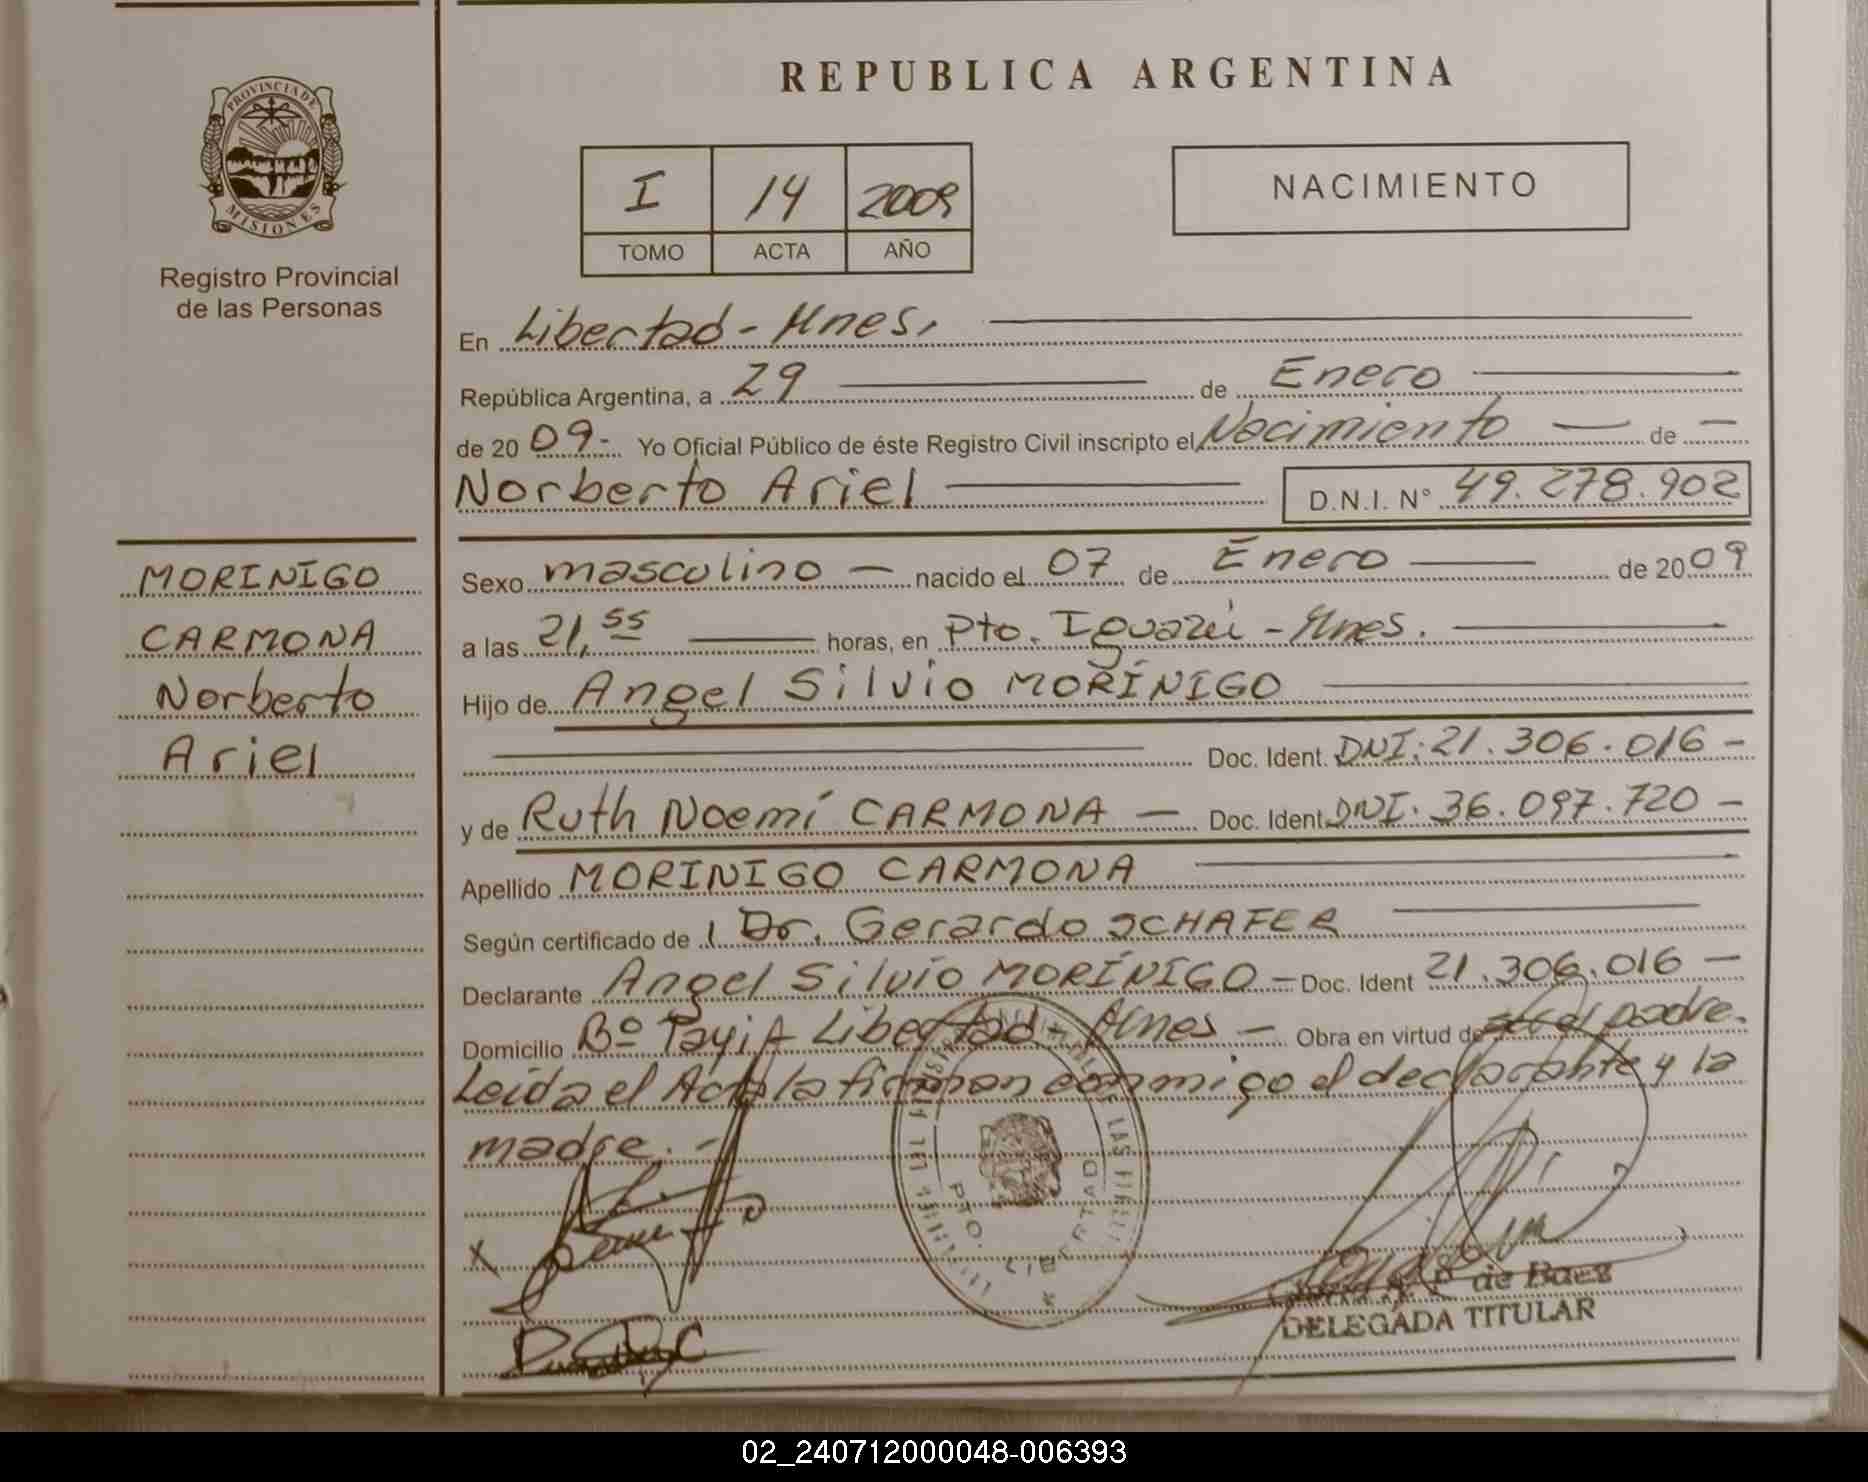 PROVINCIA DE
MISIONES
Registro Provincial
de las Personas
MORINIGO
CARMONA
Norberto
Ariel
REPUBLICA ARGENTINA
I 14 2009
TOMO ACTA AÑO
NACIMIENTO
En Libertad - Mnes.
República Argentina, a 29 de Enero
de 2009.- Yo Oficial Público de éste Registro Civil inscripto el Nacimiento — de —
Norberto Ariel D.N.I. N° 49.278.902
Sexo masculino — nacido el 07 de Enero de 2009
a las 21,55 horas, en Pto. Iguazú - Mnes.
Hijo de Angel Silvio MORÍNIGO
Doc. Ident. DNI: 21.306.016 -
y de Ruth Noemí CARMONA — Doc. Ident DNI. 36.097.720 -
Apellido MORINIGO CARMONA
Según certificado de Dr. Gerardo SCHAFER
Declarante Angel Silvio MORÍNIGO - Doc. Ident 21.306.016 -
Domicilio Bº Libertad - Mnes - Obra en virtud de ser el padre.
Leida el Acta la firman conmigo el declarante y la
madre. -
PTO. LIBERTAD
de Baez
DELEGADA TITULAR
02_240712000048-006393